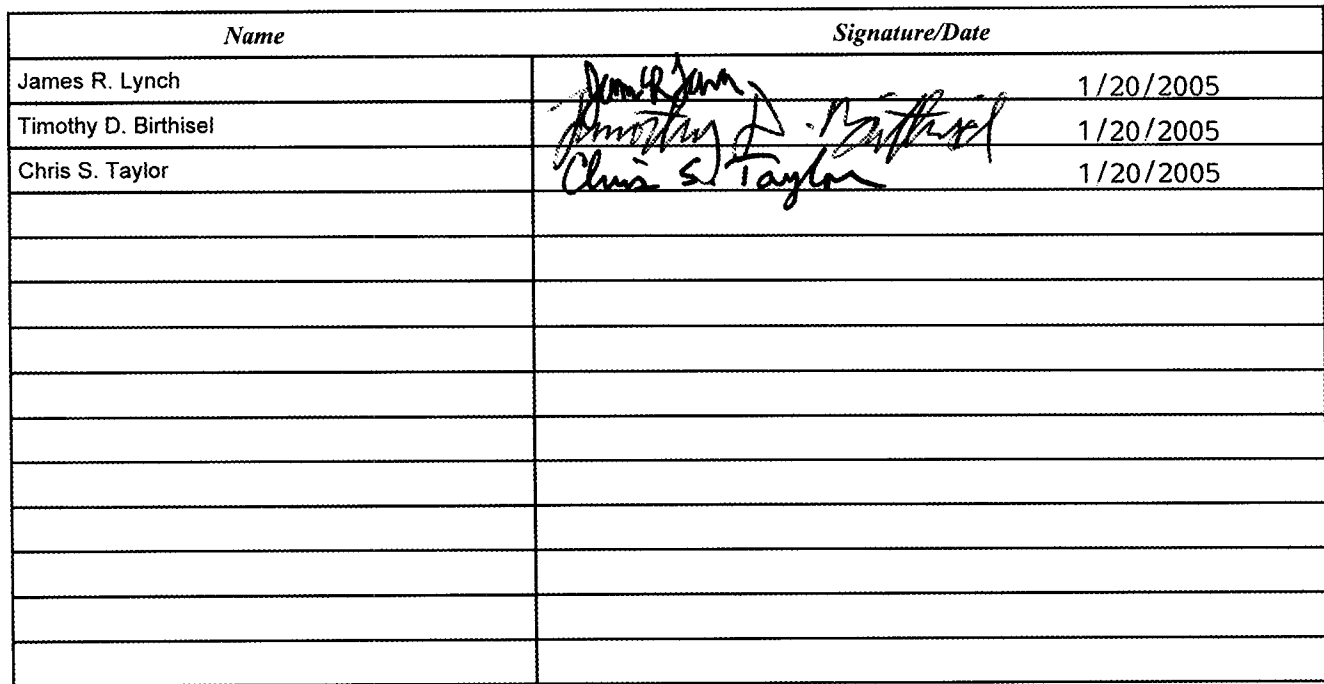 Name Signature/Date
James R. Lynch 1/20/2005
Timothy D. Birthisel Timothy D. Birthisel 1/20/2005
Chris S. Taylor Chris S. Taylor 1/20/2005